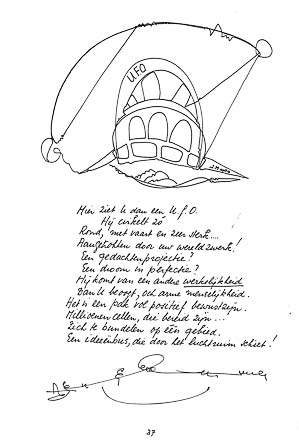 U.F.O
Hier ziet U dan een U.f.O.
Hij cirkelt zó
Rond, met vaart en zeer sterk...
Aangetrokken door uw wereldzwerk!
Een gedachtenprojectie?
Een droom in perfectie?
Hij komt van een andere werkelijkheid
Dan U beoogt, och arme menselijkheid.
Het is een pak vol positief bewustzijn.
Millioenen cellen, die bereid zijn...
Zich te bundelen op één gebied.
Een ideeënbus, die door het luchtruim schiet!
37